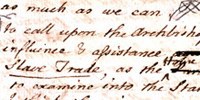 as much as we can
to call upon the Archbish
influence & assistance
Slave Trade, as the House
to examine into the Stat